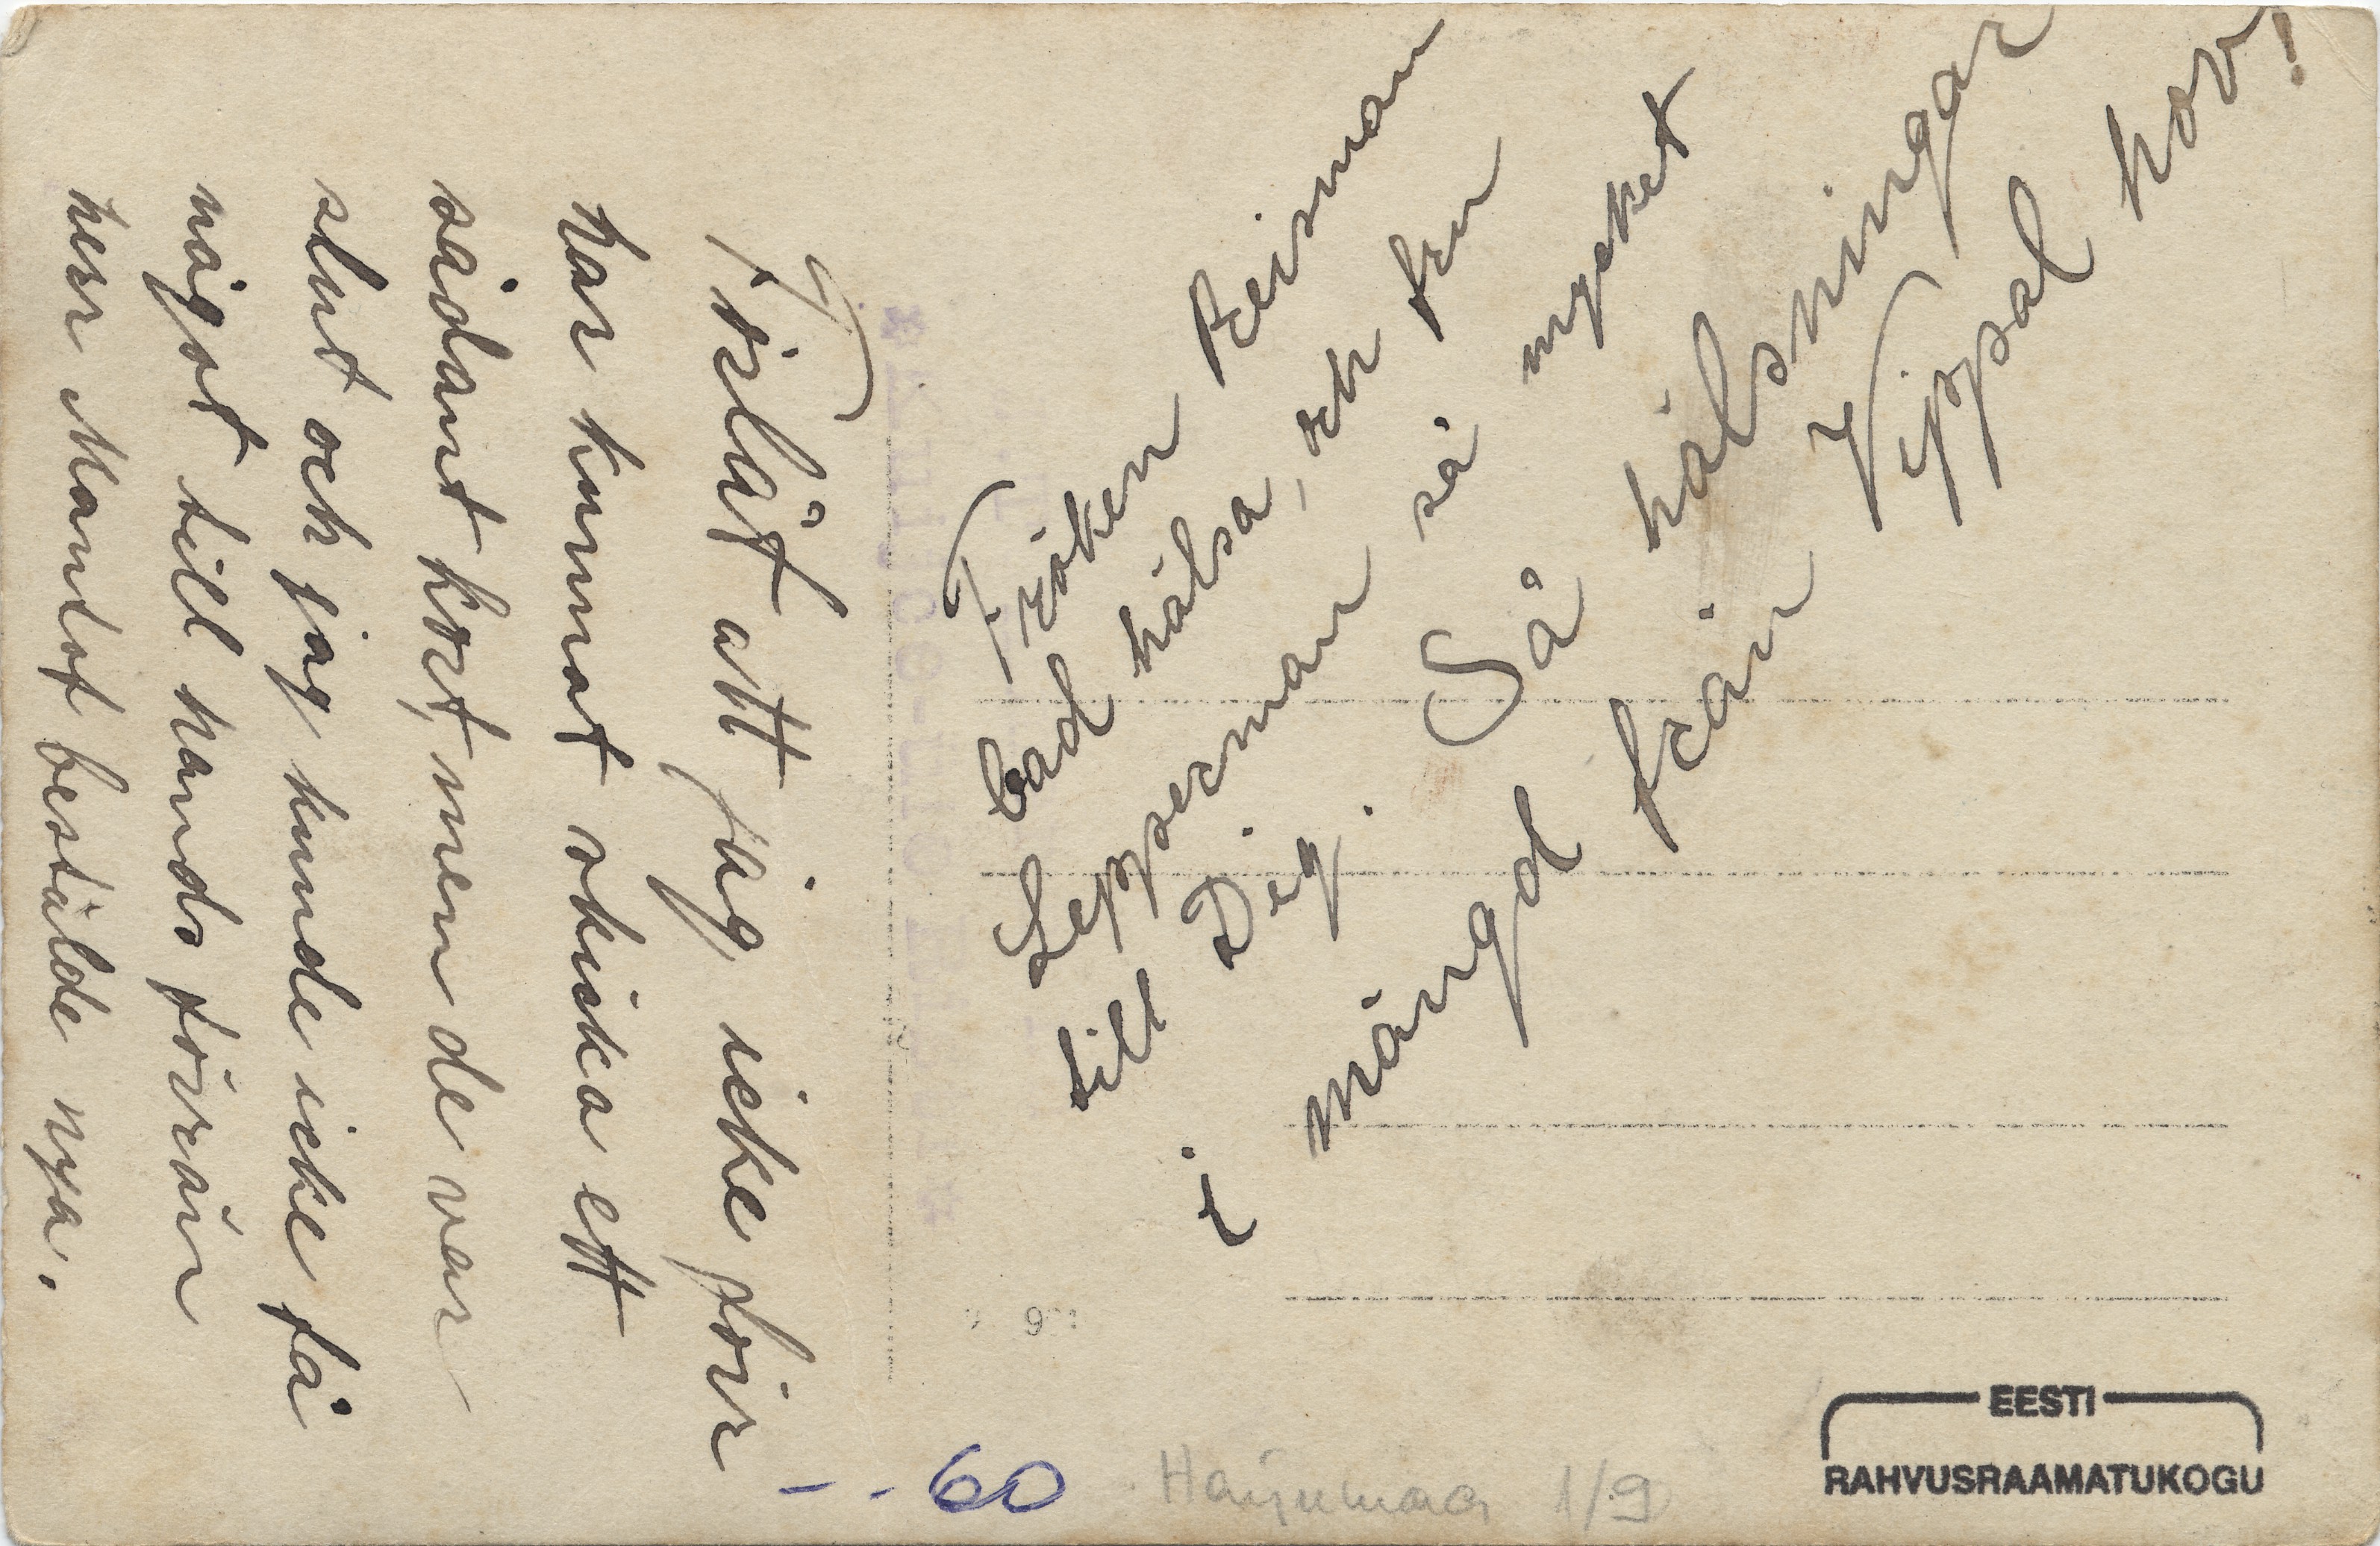 Förlåt att jag icke förr
har kunnat skicka ett
sådant kort, men de var
slut och jag kunde icke få
något till hands förrän
herr bestälde nya.
Fröken
bad hälsa, och Fru
så mycket
till Dig. Så hälsningar
i mängd från
60
Harjumaa 1/9
EESTI
RAHVUSRAAMATUKOGU